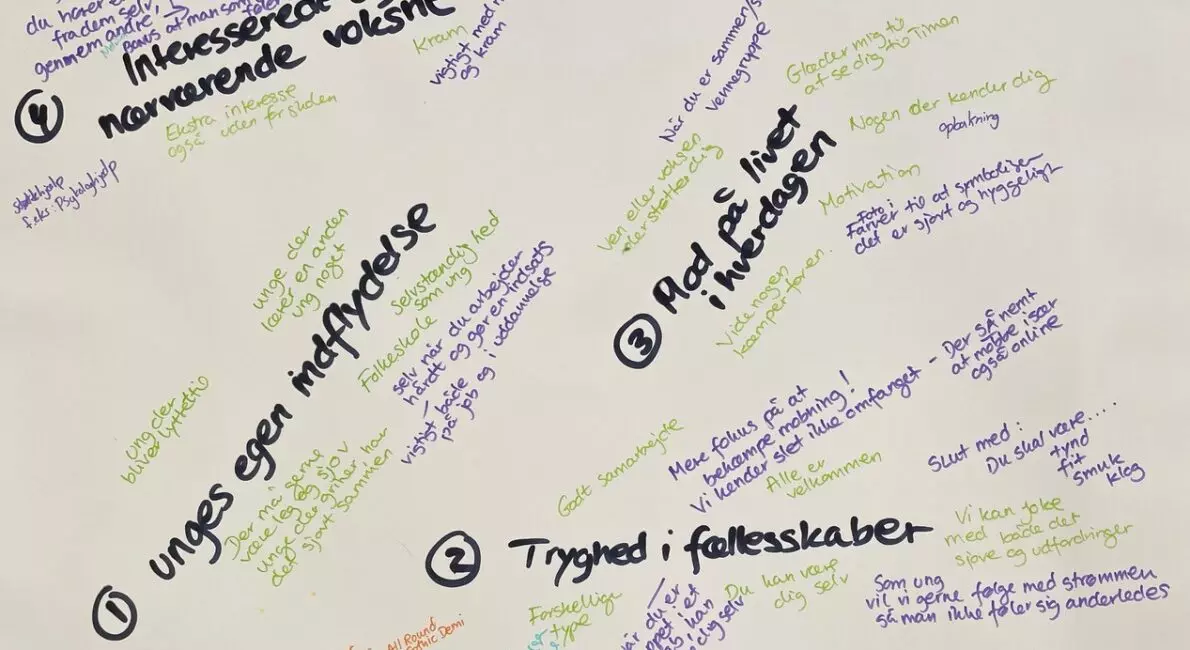 du hører e
fra dem selv,
genmem andre,
Bonus at man som
føler
Interesserede
nærværende voksne
④
Kram
vigtigt med
og kram
Ekstra interesse
også uden for jluden
f.eks. Psykologhjælp
unge der
lærer en anden
ung noget
unges egen indflydelse
①
selvstændighed
som ung
Folkeskole
selv når du arbejder
hårdt og gør en indsats
vigtigt både
på job og i uddannelse
ung der
bliver lyttet til
Der må gerne
være leg og sjov
unge der griner, har
det sjovt sammen
Når du er sammen/s
vennegruppe
Glæder mig til
at se dig til Timen
Nogen der kender dig
opbakning
Ven eller voksen
der støtter dig
③
Mod på livet
i hverdagen
Motivation
Foto i
Farver til at symboliser
det er sjovt og hyggeligt
Vide nogen
kæmper for en.
Mere fokus på at
bekæmpe mobning!
Vi kender slet ikke omfanget - Der SÅ nemt
at mobbe især
også online
Godt samarbejde
Alle er
velkommen
Slut med:
Du skal være....
tynd
fit
smuk
klog
②
Tryghed i fællesskaber
Vi kan joke
med både det
sjove og udfordringer
Som ung
vil vi gerne følge med strømmen
så man ikke føler sig anderledes
Du kan være
dig selv
Forskellige
type
når du er
ppet i et
ab, kan
dig selv
All Round
Gothic Demi